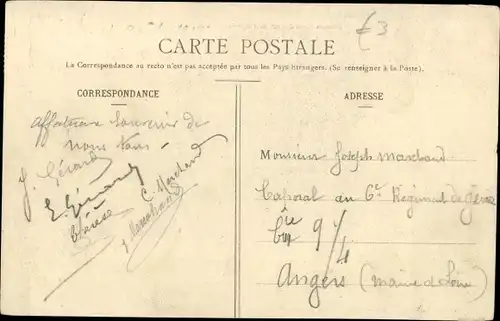 £3
CARTE POSTALE
La Correspondance au recto n'est pas acceptée par tous les Pays étrangers. (Se renseigner à la Poste).
CORRESPONDANCE
Affectueux Souvenir de
nous tous
J. Gérard
E. Gérard
Thérèse
C. Marchand
J. Marchand
ADRESSE
Monsieur Joseph Marchand
Caporal au 6e Régiment de Génie
Cie 9/4
Angers (Maine et Loire)